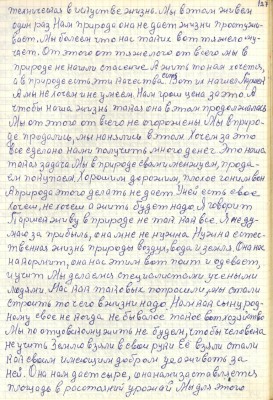 127
техническая в искустве жизни. Мы в этом живем
один раз Нам природа она не дает жизни простужа-
вает. Мы болеем что нас таких вот тяжело му-
чает. От этого от тяжелого от всего мы в
природе не нашли спасение. А жить то нам хочется,
а в природе есть эти качества. Вот их нашел Паршек
А мы не хочем и не умеем. Нам грош цена за это А
чтобы наша жизнь такая она в этом продолжалась
Мы от этого от всего не огорожены. Мы в приро-
де продались, мы нанялись в этом. Хочем за это
все сделано нами получить много денег. Это наша
такая задача. Мы в природе свами меняемся, прода-
ем покупаем. Хорошим дорожим, плохое гоним вон
А природа этого делать не дает. У ней есть свое
хочеш, не хочеш а жить будет надо. Я говорит
Паршек живу в природе не так как все. Я не ду-
маю за прибыль, она мне не нужна. Нужна естес-
твенная жизнь природы воздух, вода и земля. Она нас
накормит, она нас этим вот поит и одевает,
и учит Мы делаемся специалистами учеными
людьми Нас как таковые попросили, мы стали
строить то чего в жизни надо Нам как сыну род-
ному свое не когда не бывалое такое вот хозяйство
Мы по отцовскому жить не будем, чтобы человека
не учить Землю взяли в свои руки Её взяли стали
как своим имеющим добром ухаживать за
ней. Она нам дает сыре, она нами заставляется
площадь в расстояний урожай Мы для этого